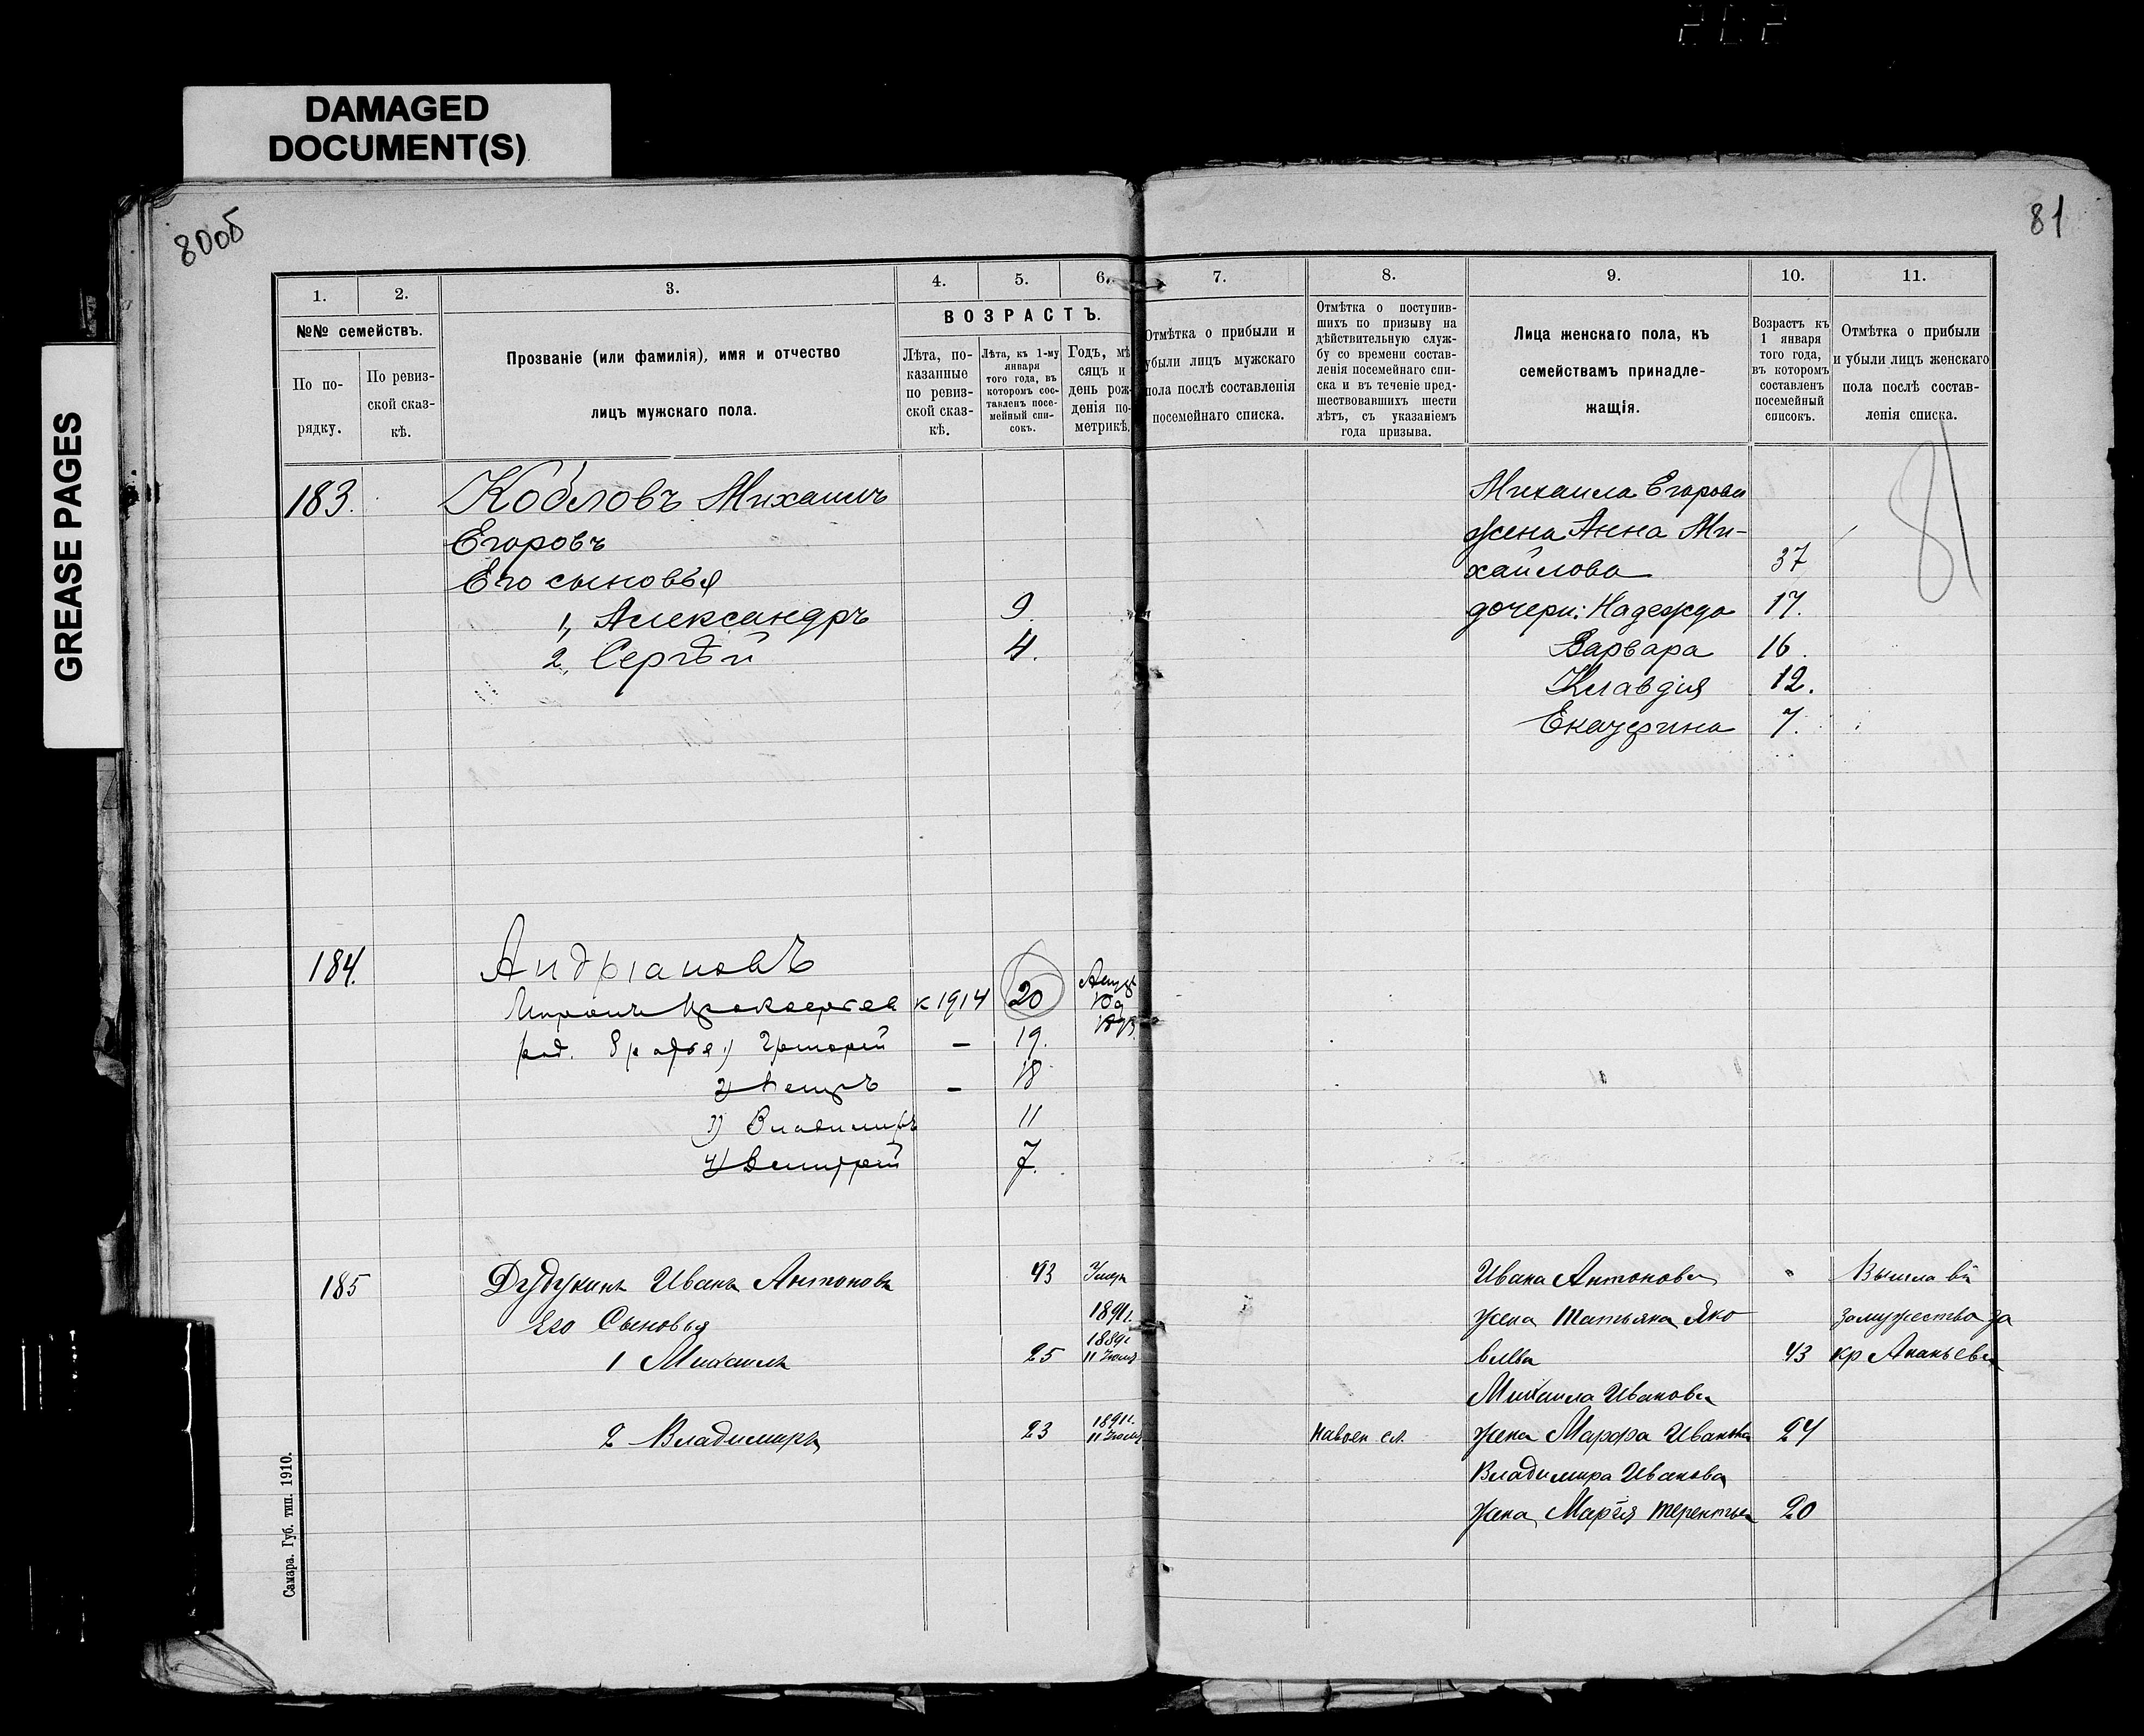 202
DAMAGED
DOCUMENT(S)
GREASE PAGES
80об
81
1.
2.
3.
4.
5.
6.
7.
8.
9.
10.
11.
№№ семействъ.
По по-
рядку.
По ревиз-
ской сказ-
кѣ.
Прозваніе (или фамилія), имя и отчество
лицъ мужскаго пола.
ВОЗРАСТЪ.
Лѣта, по-
казанные
по ревиз-
ской сказ-
кѣ.
Лѣта, къ 1-му
января
того года, въ
которомъ сос-
тавленъ посе-
мейный спи-
сокъ.
Годъ, мѣ
сяцъ и
день рож-
денія по-
метрикѣ.
Отмѣтка о прибыли и
убыли лицъ мужскаго
пола послѣ составленія
посемейнаго списка.
Отмѣтка о поступив-
шихъ по призыву на
дѣйствительную служ-
бу со времени состав-
ленія посемейнаго спи-
ска и въ теченіе пред-
шествовавшихъ шести
лѣтъ, съ указаніемъ
года призыва.
Лица женскаго пола, къ
семействамъ принадле-
жащія.
Возрастъ къ
1 января
того года,
въ которомъ
составленъ
посемейный
списокъ.
Отмѣтка о прибыли
и убыли лицъ женскаго
пола послѣ состав-
ленія списка.
81
183. Кобловъ Михаилъ
Егоровъ
Его сыновья
1, Александръ 9.
2, Сергѣй 4.
Михаила Егорова
жена Анна Ми-
хайлова 37
дочери: Надежда 17.
Варвара 16.
Клавдія 12.
Екатерина 7.
184. Андріановъ
к 1914 20
род. братья 1) Григорій - 19.
2) Петръ - 18
3) Владимиръ 11
4) 7.
185 Дудукинъ Иванъ Антоновъ 43 Умеръ
Его Сыновья 1891г.
1 Михаилъ 25 1889г.
11 Іюля
2 Владимиръ 23 1891г.
11 Іюля
сл.
Ивана Антонова Вышла въ
жена Татьяна Яко замужество за
влева 43 кр Ананьева
Михаила Иванова
жена Марфа Иванова 24
Владимира Иванова
жена Марія Терентьева 20
Самара. Губ. тип. 1910.